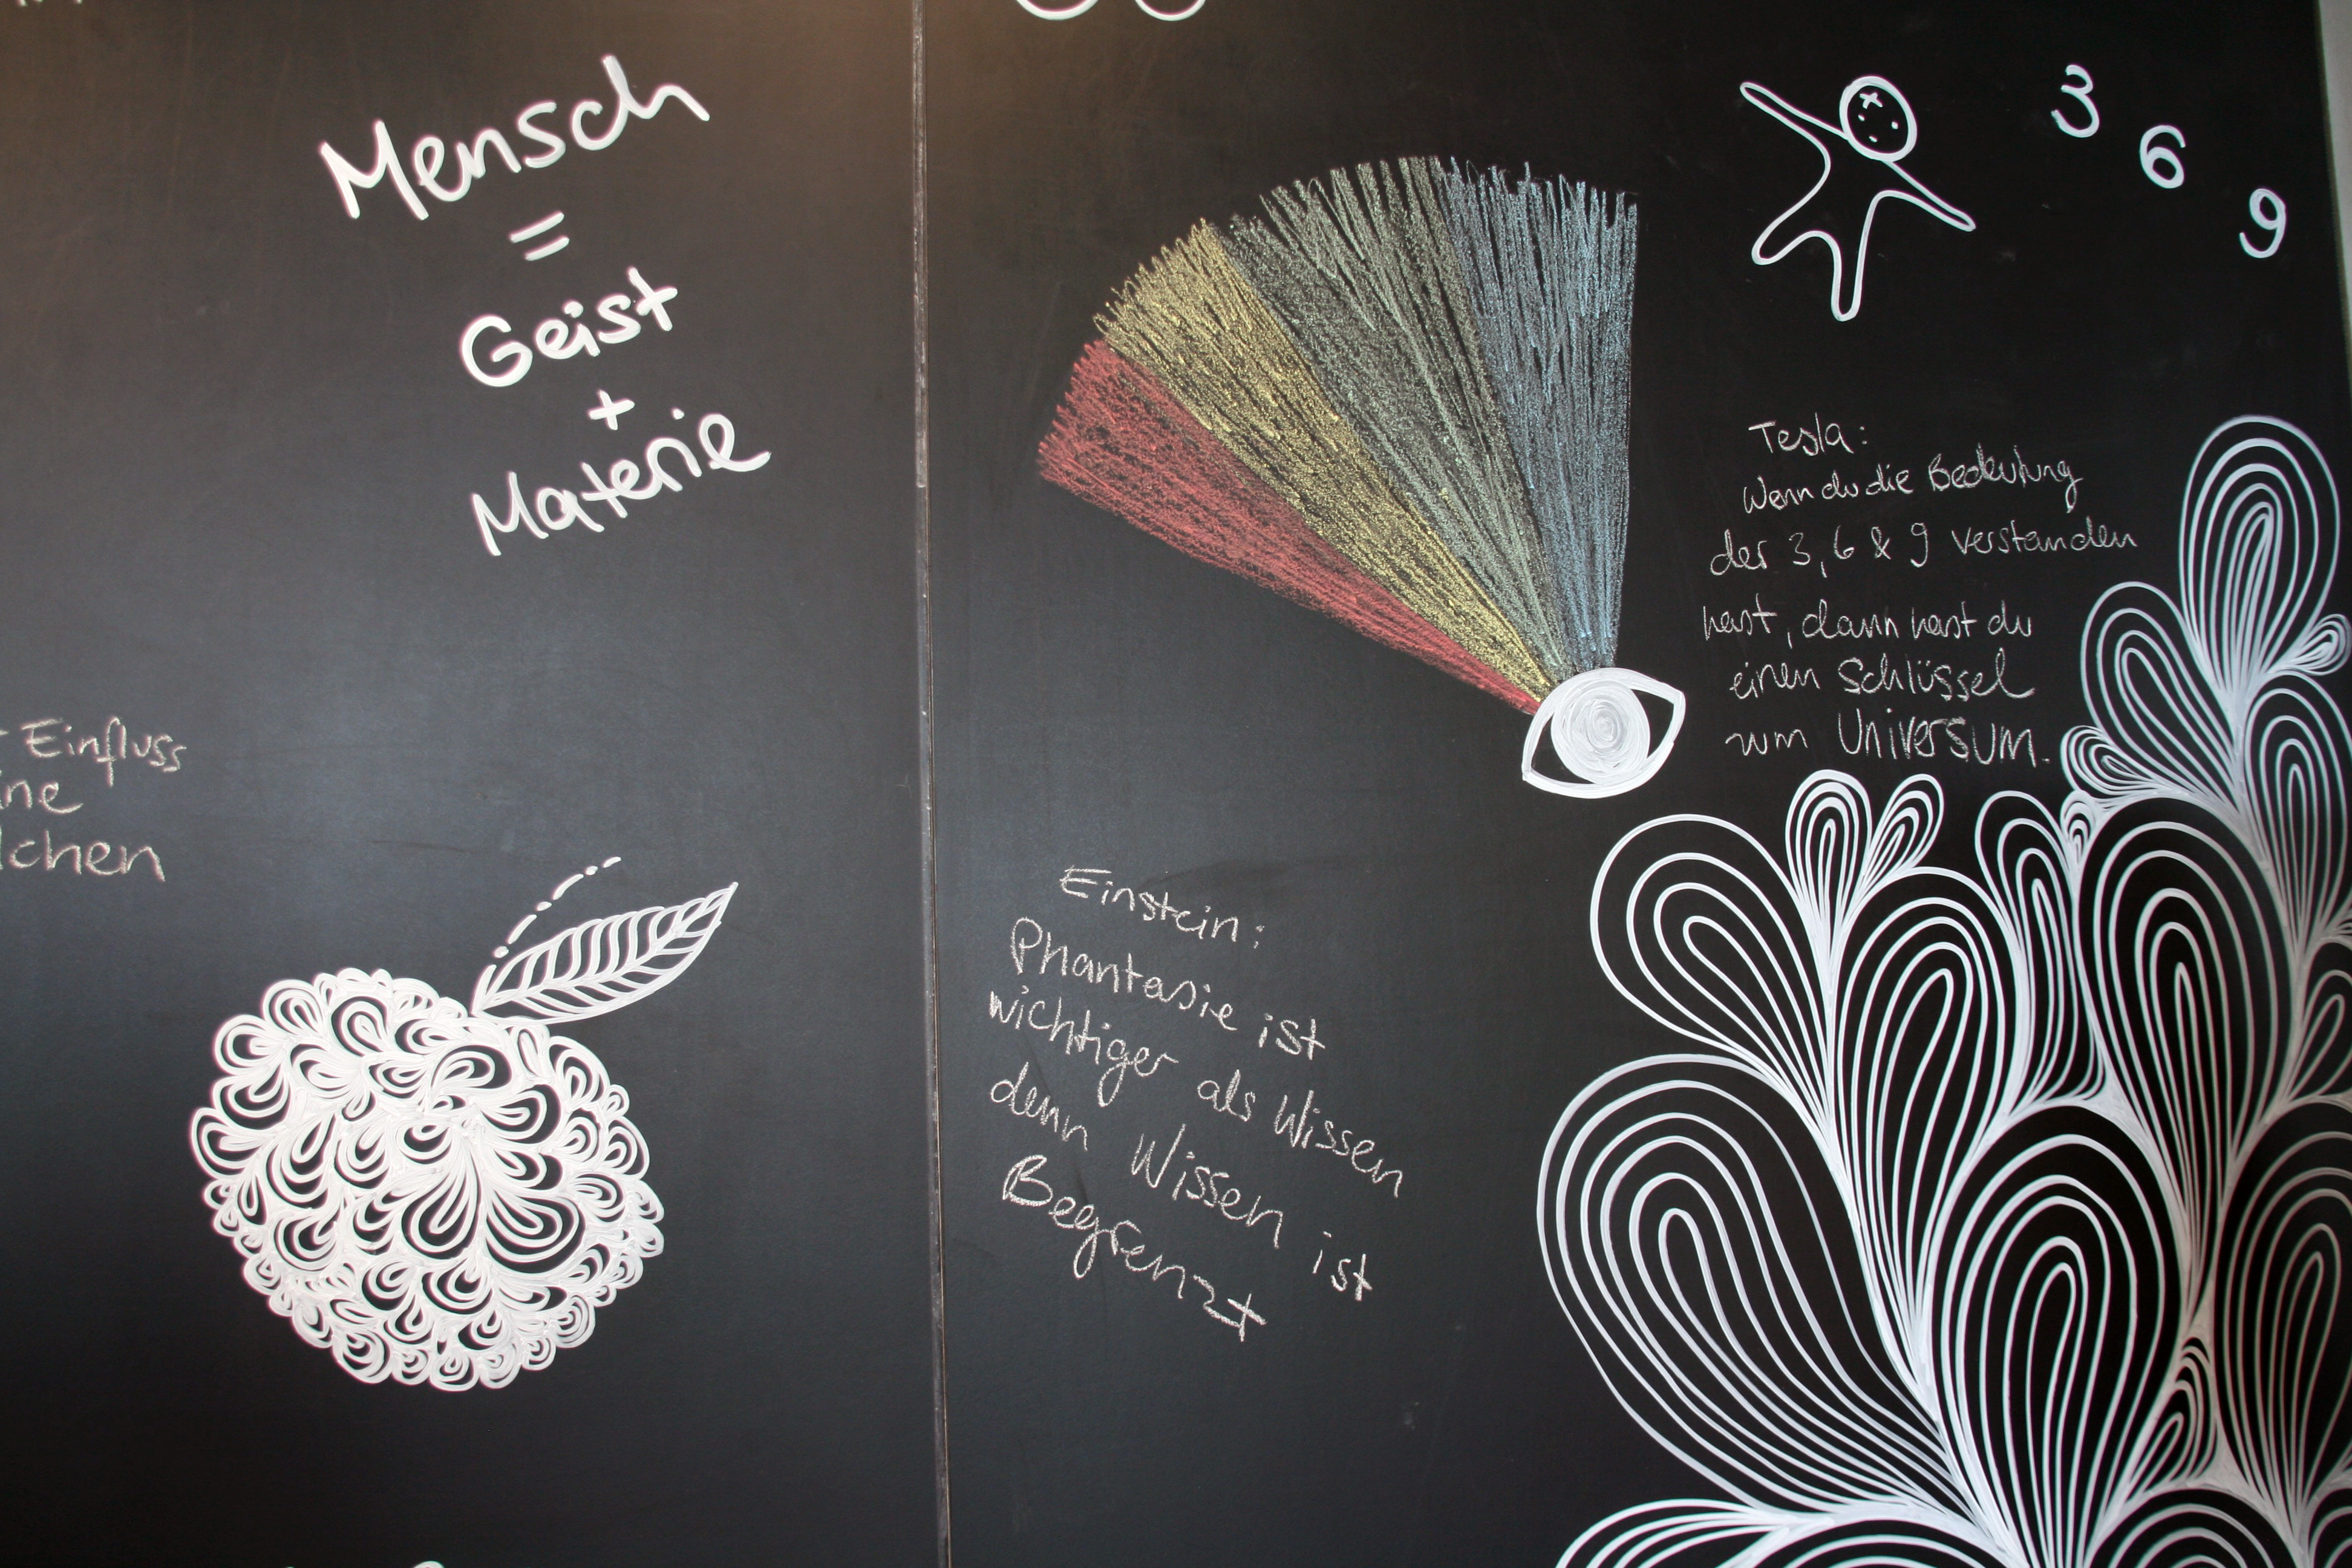 Mensch
=
Geist
+
Materie
Einfluss
3 6 9
Tesla:
Wenn du die Bedeutung
der 3, 6 & 9 verstanden
hast, dann hast du
einen Schlüssel
zum Universum.
Einstein:
Phantasie ist
wichtiger als Wissen
denn Wissen ist
Begrenzt